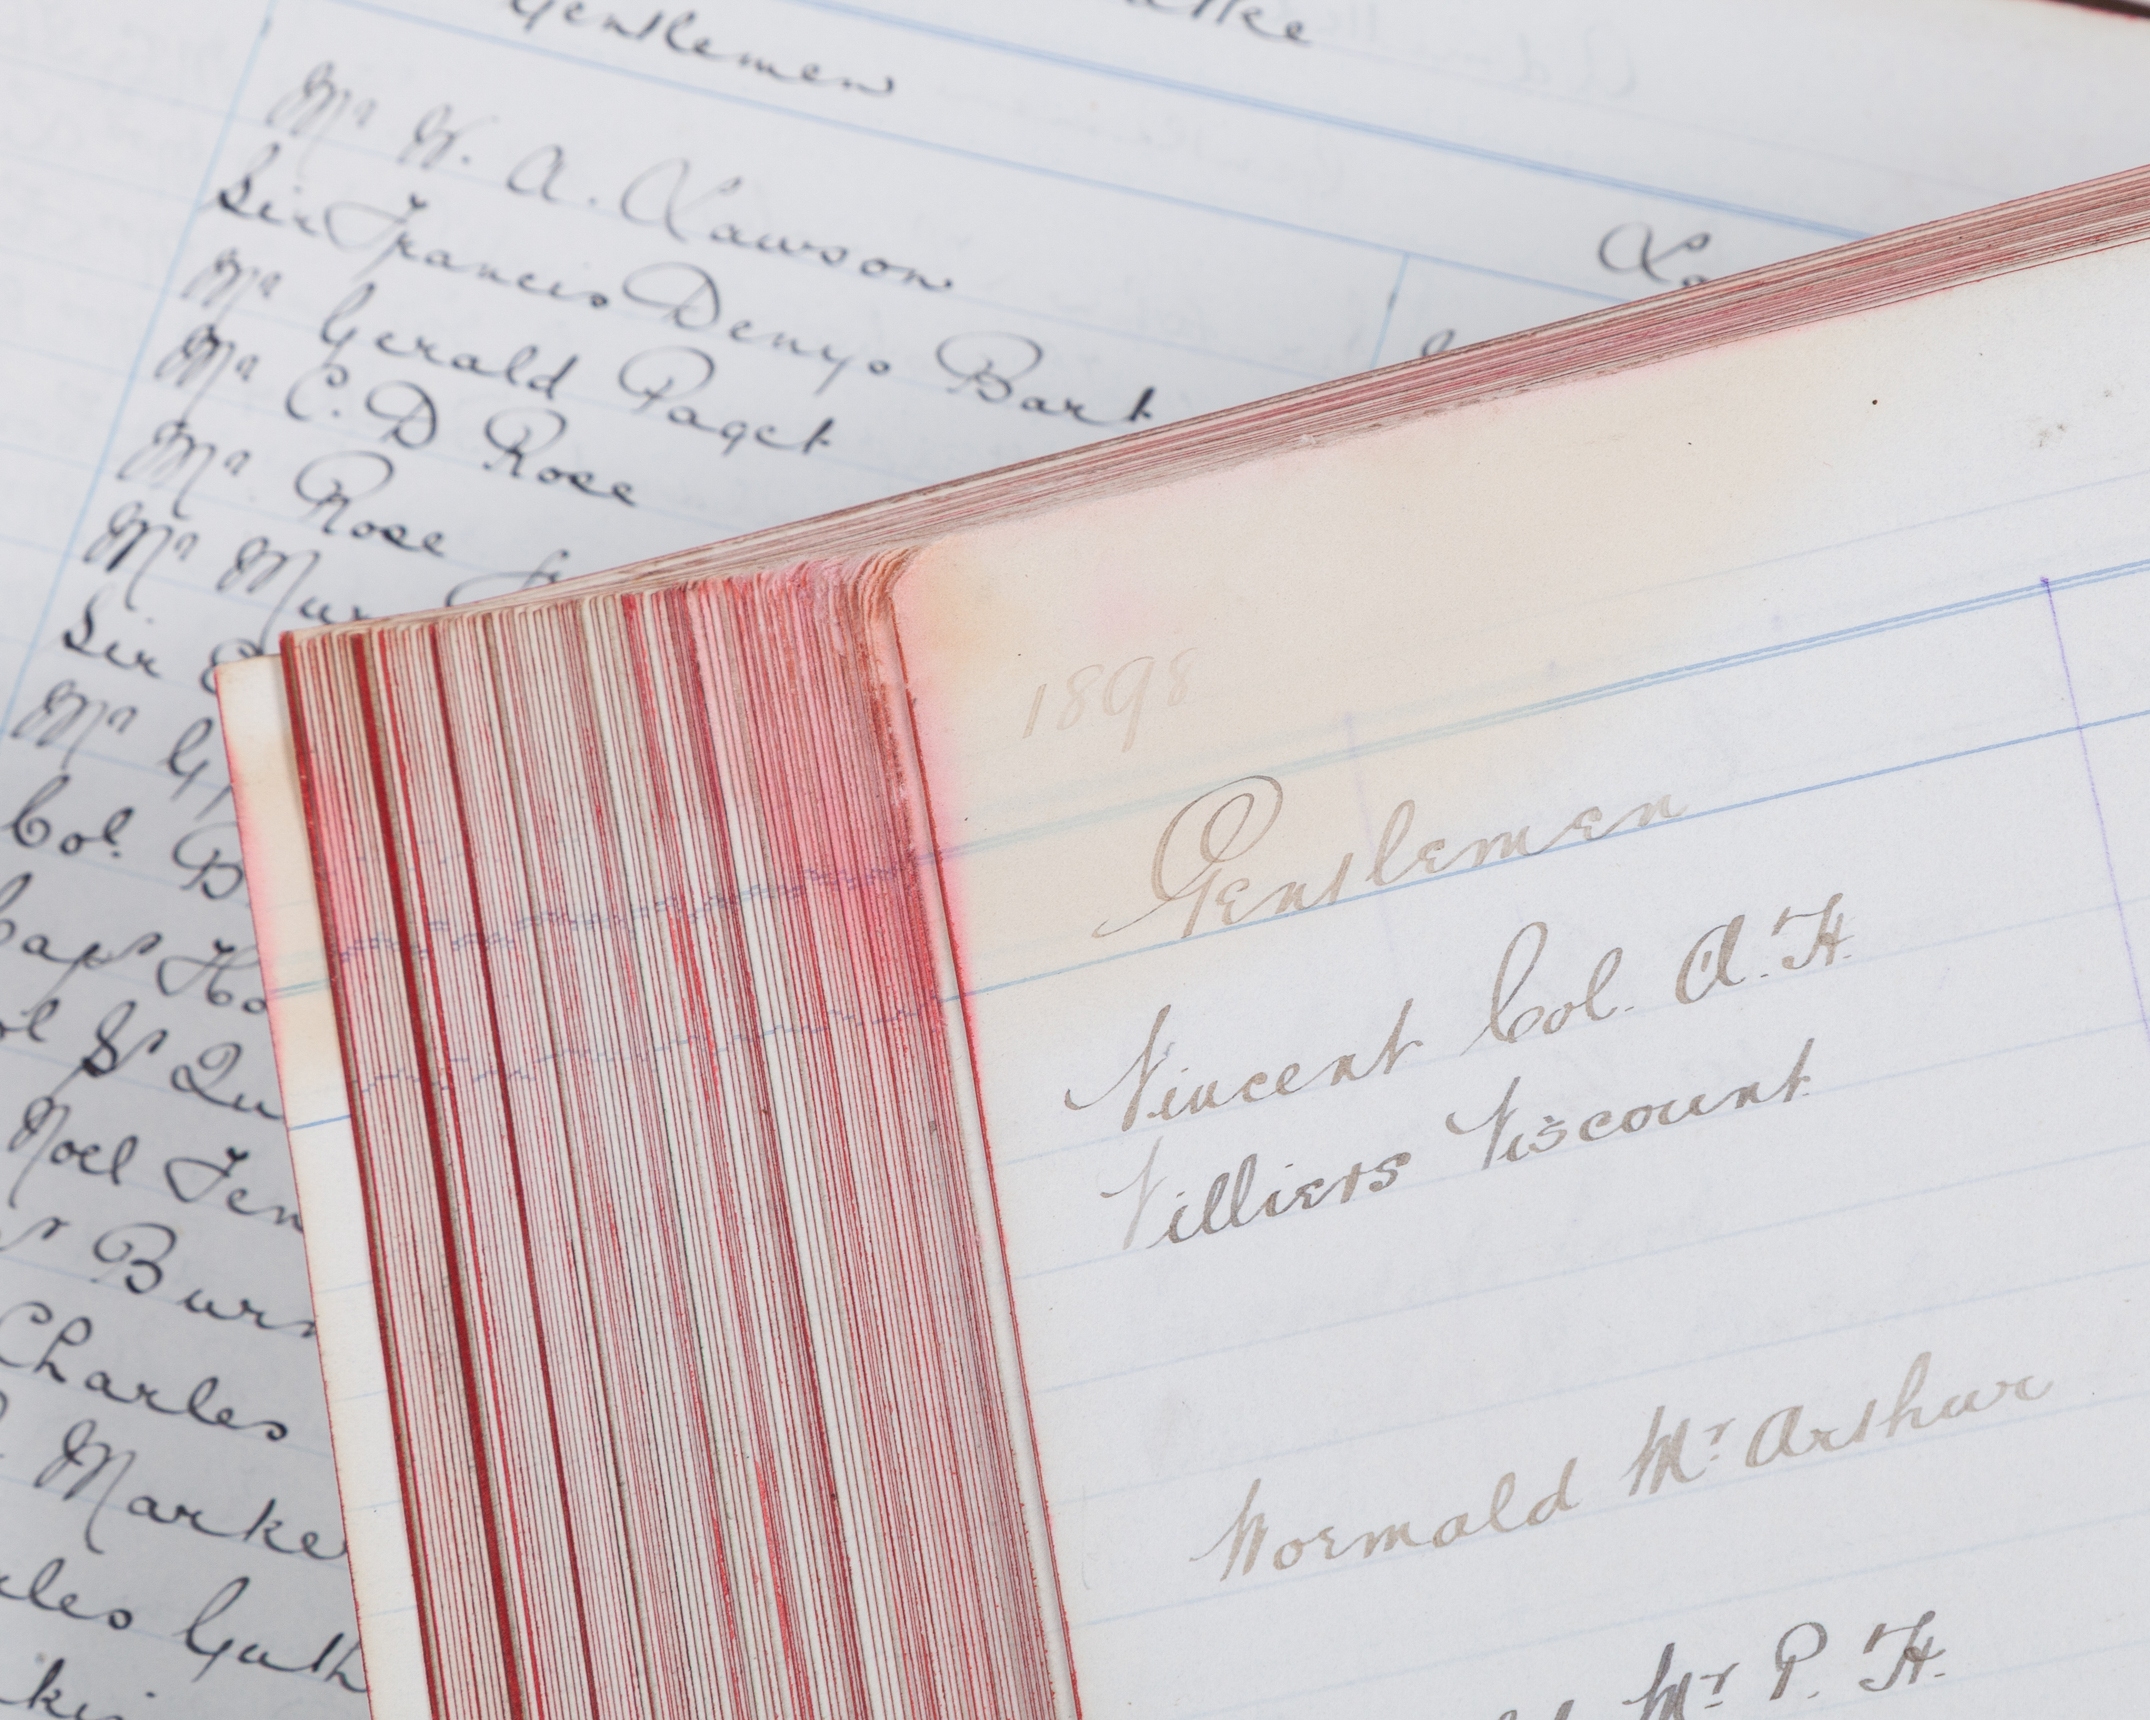 Gentlemen
Mr W. A. Lawson
Sir Francis Denys Bart
Mr Gerald Paget
Mr C. D Rose
Mr Rose
Mr
Sir
Mr
Col. B
Capt Ho
Qu
Noel
Burn
Charles
Marke
Guth
1898
Gentlemen
Vincent Col. A. H.
Villiers Viscount
Wormald Mr Arthur
Mr P. H.